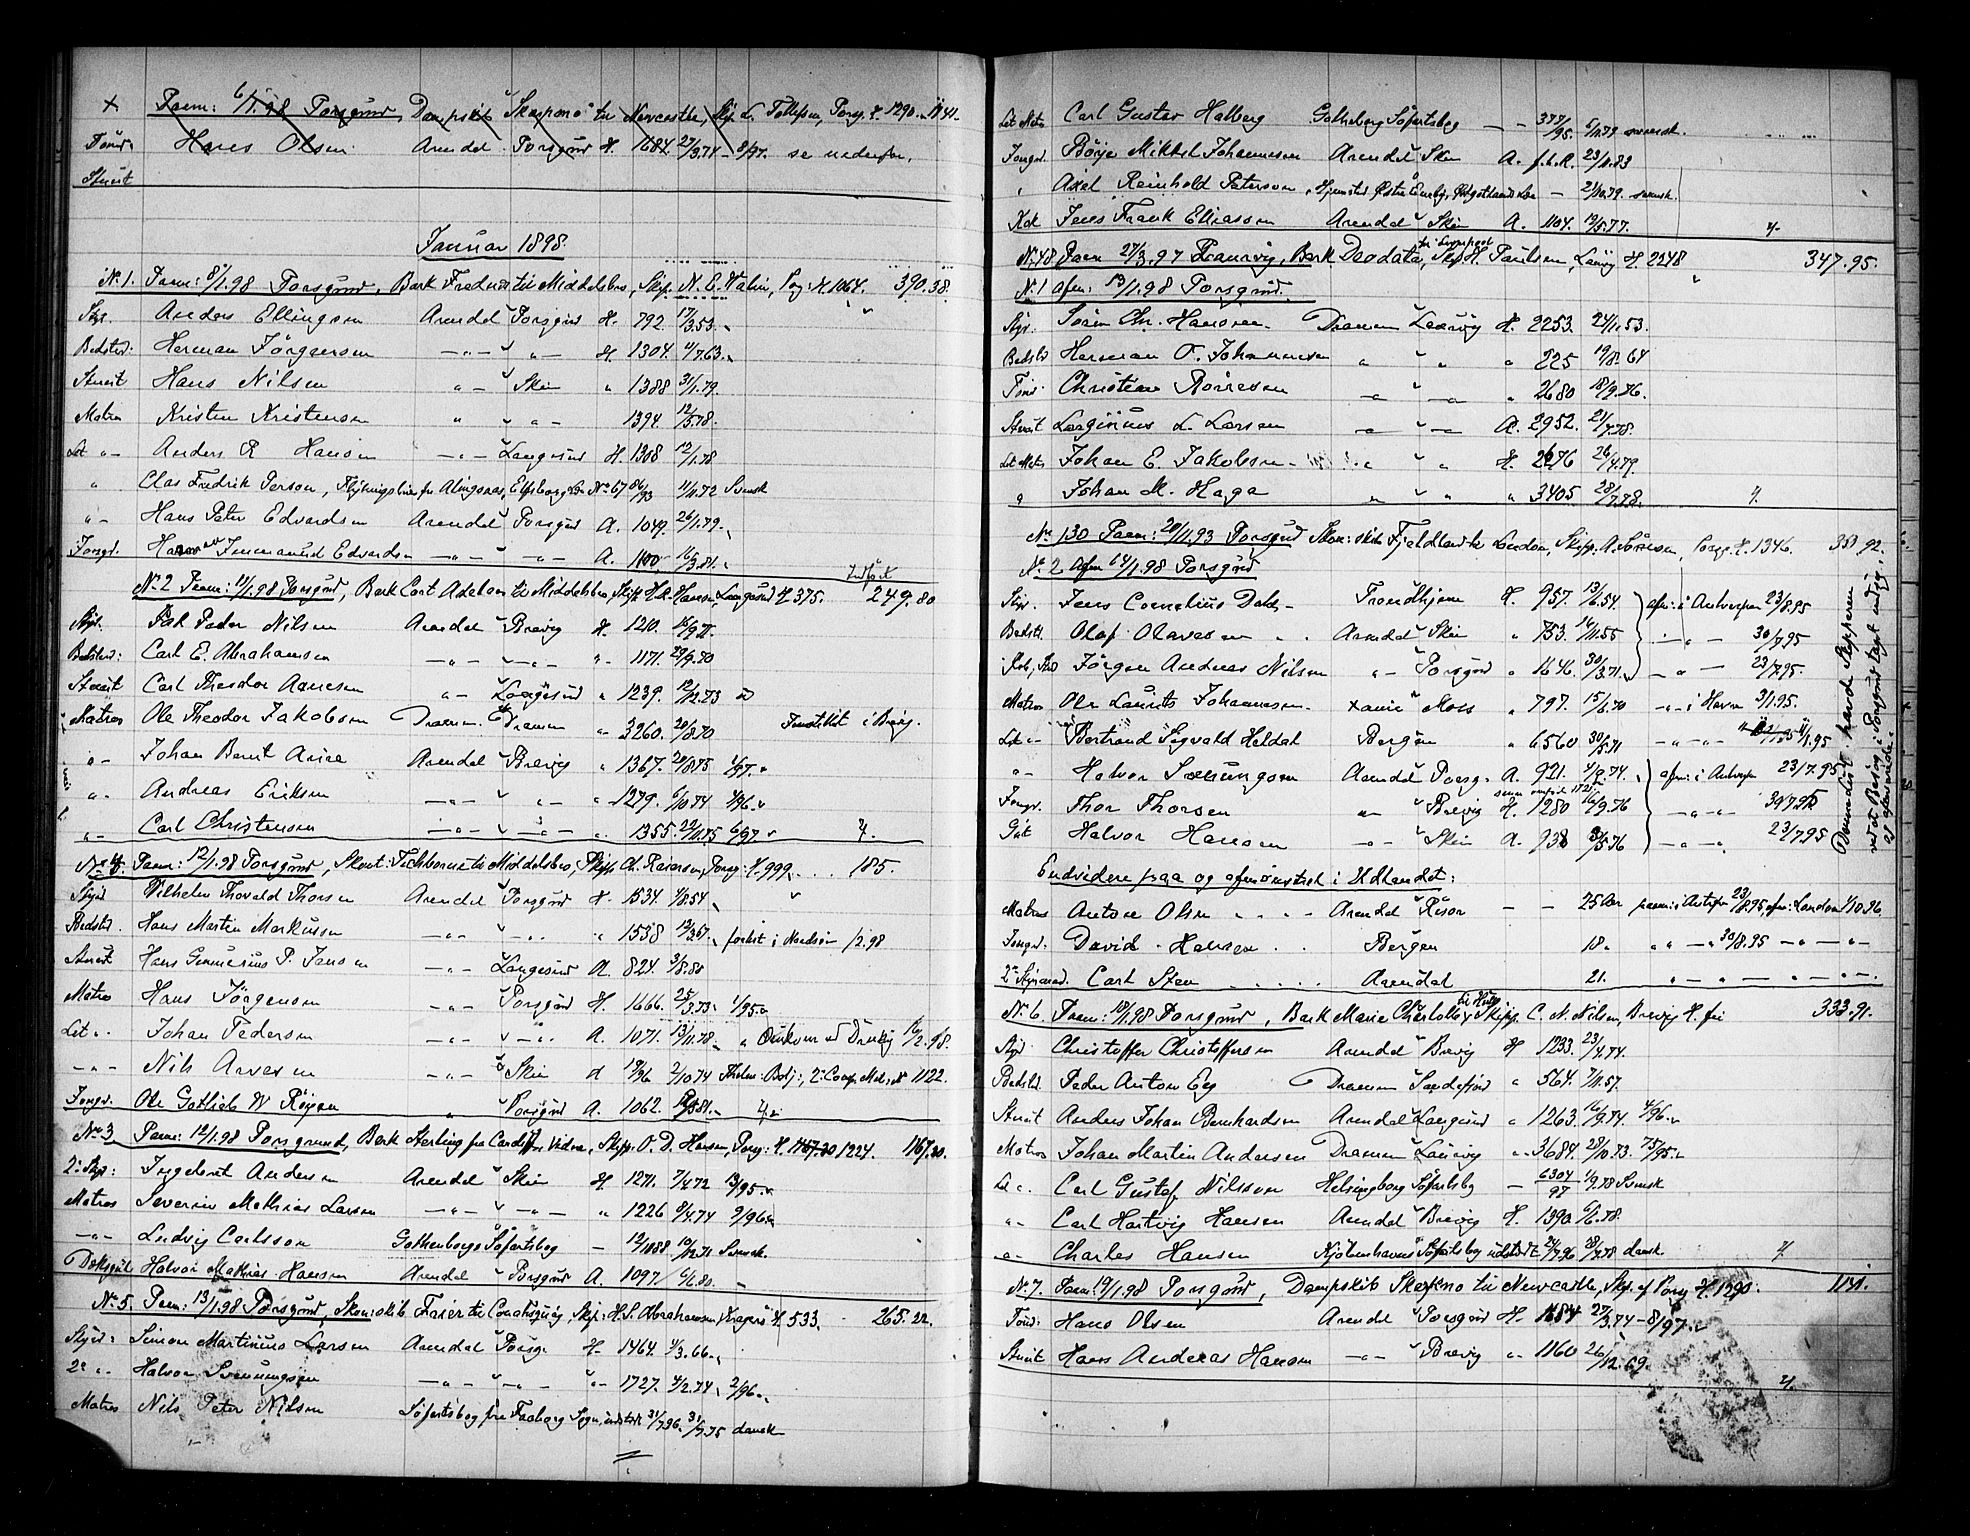 + Paam: 6/1.98 Porsgrund, Dampskib "Skarpsno" til Newcastle, Skp. L. Tollefsen, Porsg. H. 1290. 1141.
Fönd. Hans Olsen Arendal Porsgrund H. 1684. 27/3.74 - 8/97. se nedenfor.
Stuert
Januar 1898.
No. 1. Paam: 8/1.98 Porsgrund, Bark Frednæs til Middelsbro, Skp. N. E. Wahrn, Porsg: H. 1064. 390.38.
Styr. Anders Ellingsen Arendal Porsgrund H. 792. 17/3.53.
Bedstd: Herman Jörgensen —„— „— H. 1304. 11/7.63.
Stuert Hans Nilsen „ — Skien „ 1388 31/1.79.
Matros Kristen Kristensen „ „ „ — 1394. 12/5.78.
Let „— Anders R Hansen —„— Langesund H. 1308 12/1.78
„ Clas Fredrik Person, Flyktningsbevis fra Alingsaas, Elfsborg Län No 67 86/93 11/11.72 Svensk
„— Hans Peter Edvardsen Arendal Porsgrund A. 1049. 26/1.79.
Jungm. Immanuel Edvardsen —„— —„— A. 1100. 16/3.81.
No 2 Paam: 11/1.98 Porsgrund, Bark Cort Adelaer til Middelsbro, Skp. H. R. Hansen, Langesund H. 375. Indført 249.80
Styr. Peder Nilsen Arendal Brevig H. 1210. 15/9.77.
Bedstd: Carl E. Abrahamsen —„— —„— „ 1171. 29/9.70
Stuert Carl Theodor Aanesen „— Langesund „ 1239. 12/12.73
Matros Ole Theodor Jakobsen Dramm. Drammen „ 3260. 20/8.70 Forstilkt i Brevig.
„— Johan Bernt Arise Arendal Brevig „ 1367. 20/8.75 1/97.
„. Andreas Eriksen —„— „— „ 1279. 6/10.74 4/96.
„— Carl Christensen —„— —„— „ 1355. 22/11.75 6/97. 7.
No 4. Paam: 12/1.98 Porsgrund, Skont: Tichborne til Middelsbro, Skpp. Ch. Reiersen, Porsg: H. 999. 185.
Styrd Wilhelm Thorvald Thorsen Arendal Porsgrund H. 1534. 4/8.54
Bedstd. Hans Martin Markussen —„— —„— „ 1538 12/3.57. forlist i Nordsöen /2.98
Stuert Hans Gunnerius P. Jensen —„— Langesund A. 824. 3/8.80
Matros Hans Jörgensen —„— Porsgrund H. 1666. 25/3.73. 1/95.
Let „. Johan Pedersen —„— —„— A. 1071. 13/11.78. „ Omkom ved Drukning 16/2.98.
—„— Nils Arvesen —„— Skien A 19/96 2/10.74 Thelem: Batj:, 2: Comp. Mds. No 1122.
Jungm. Ole Gotlieb W Röyen „ Porsgrund A. 1062. 12/5.81. 7.
No 3 Paam: 12/1.98 Porsgrund, Bark Sterling fra Cardiff, videre, Skpp. O. D. Hansen, Porsg: H. 1167.20 1224. 1167.20.
2: Styr: Ingebret Andersen Arendal Skien H 1271. 7/4.72 13/95.
Matros Severin Mathias Larsen —„— —„— „ 1226 9/4.74 9/96
—„— Ludvig Carlsson Gothenborgs Söfartsbog — 12/1088 10/12.71 Svensk.
Dæksgut Halvor Mathias Hansen Arendal Porsgrund A. 1097 6/6.80.
No 5. Paam: 13/1.98 Porsgrund, Skon: skib Freier til Conahsquay, Skp: H. S. Abrahamsen, Kragerö H. 533. 265.22.
Styrd: Simon Martinius Larsen Arendal Porsg. H 1464. 4/3.66.
2e „. Halvor Svenningsen —„— —„— „— 1727. 4/2.74 2/96.
Matros Nils Peter Nilsen Söfartsbog fra Faaborg Sogn, udstedt 31/7.96. 31/7.75 dansk

Let Matros Carl Gustav Halberg Gothebergs Söfartsbog — — 377/95. 5/11.79 svensk.
Jungm. Börje Mikkel Johannesen Arendal Skien A. f.l.R. 23/11.83
„ Axel Reinhold Peterson, Östra Eneby, Östergötlands Län — 21/10.79. svensk.
Kok Jens Frank Eliassen Arendal Skien A. 1104. 19/5.77. 7.
No. 48 Paam 27/3.97 Laurvig, Bark Deodata, til Liverpool Skp. H. Paulsen, Laurvig H. 2248 347.95.
No. 1 Afm: 13/1.98 Porsgrund.
Styr. Sören Chr. Hansen. Drammen Laurvig H. 2253. 24/1.53.
Bedstd Herman O. Johannesen „ „ „ 225 19/8.64
Tönd. Christian Börresen —„— „ 2680 18/9.76.
Stuert Larginius L. Larsen —„— —„— A. 2952. 21/7.78.
Let Matros Johan E. Jakobsen. „ „ H. 2676 26/4.79.
„ Johan M. Haga „ „ „ 3405. 28/7.78. 7.
No. 130 Paam: 20/11.93 Porsgrund Skon: skib Fjeldhand til London, Skpp. A. Sörensen, Porsg. H. 1346. 351.92.
No. 2 Afm 14/1.98 Porsgrund
Styr. Jens Cornelius Dahl. Trondhjem H. 957. 13/6.54. afm: i Antwerpen 23/8.95
Bedstd. Olaf Olavesen Arendal Skien „ 753. 16/11.55 —„— 30/7.95
Jörgen Andreas Nilsen „ Porsgrund „ 1646. 30/3.71. —„— 23/7.95.
Matros Ole Laurits Johannesen. Moss „ 797. 15/6.70 —„— i Havre 3/1.95.
Let „— Bertrand Sigvald Heldal Bergen „ 6560 30/5.71 —„— 11/1.95
„— Halvor Svenningsen Arendal Porsg. A. 921. 4/2.74. afm: i Antwerpen 23/7.95
Jungm. Thor Thorsen „— Brevig H. 1280 16/9.76 —„— 30/7.95
Gut Halvor Hansen —„— Skien A. 938 21/5.76 —„— 23/7.95
Dermed havde Skipperen ved et Besög i Porsgrund taget med sig.
Endvidere paa og afmönstret i Udlandet:
Matros Anton Olsen Arendal Risör — — 25 Aar paam: i Antwpn 23/8.95, afm: London 1/10.96.
Jungm. David Hansen Bergen 18. „ „ — „ 30/8.95 —„—„—
2n Styrmand. Carl Sten Arendal 21. „ — „ —„—„—
No. 6. Paam: 18/1.98 Porsgrund, Bark Marie Charlotte, til Hull Skipp. C. N. Nilsen, Brevig H. fri 333.91.
Styr. Christoffer Christoffersen Arendal Brevig H 1233. 23/4.74.
Bedstd. Peder Anton Eeg Drammen Sandefjord „ 564. 7/11.57.
Stuert Anders Johan Bernhardsen Arendal Langesund „ 1263. 16/9.74. 4/96.
Matros Johan Martin Andersen Drammen Laurvig „ 3684. 28/10.73. 75/95.
Let „. Carl Gustaf Nilsson Helsingborg Söfartsbg — 6304/97 1/9.78 Svensk
„— Carl Hartvig Hansen Arendal Brevig H. 1390 6/6.78.
„— Charles Hansen Kjöbenhavns Söfartsbog udstedt 24/7.96 28/7.78 dansk 7.
No. 7. Paam: 19/1.98 Porsgrund, Dampskib Skarpsno til Newcastle, Skp. af Porsg. H. 1290: 1141.
Fönd: Hans Olsen Arendal Porsgrund H. 1684 27/3.74 - 8/97.
Stuert Hans Andreas Hansen —„— Brevig „ 1160 26/12.69. 7.